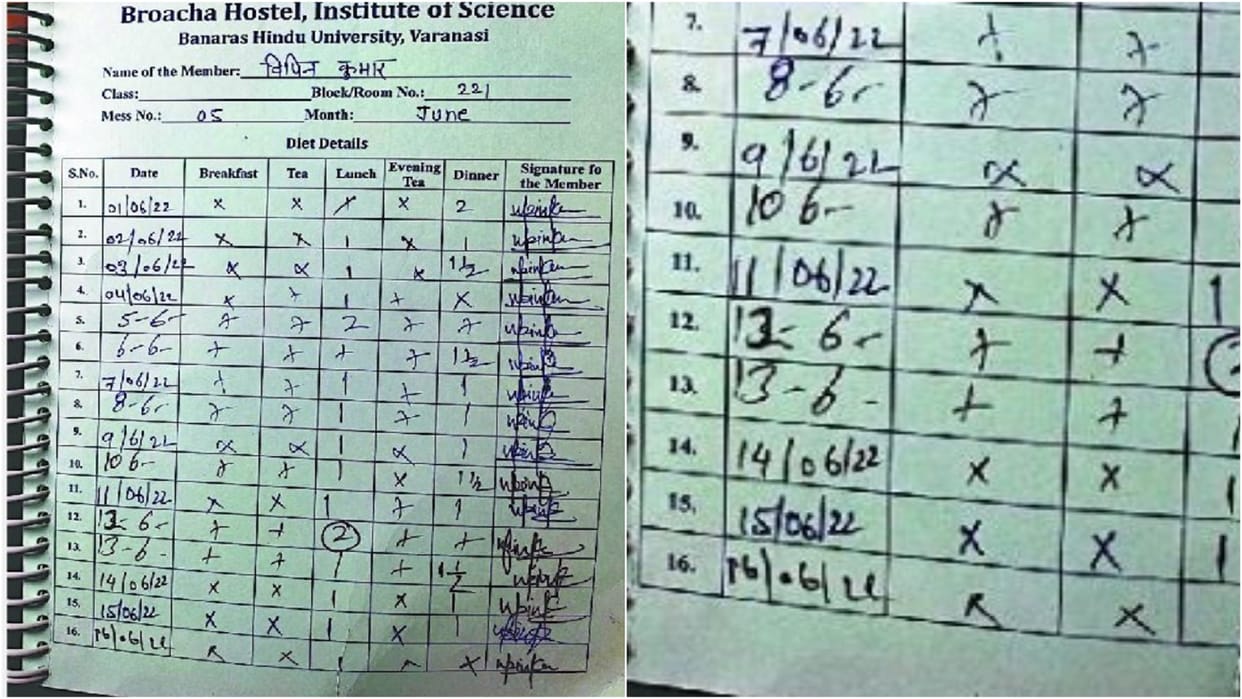 Broacha Hostel, Institute of Science
Banaras Hindu University, Varanasi
Name of the Member: विपिन कुमार
Class: Block/Room No.: 221
Mess No.: 05 Month: June
Diet Details
S.No. Date Breakfast Tea Lunch Evening Tea Dinner Signature fo the Member
1. 01/06/22 x x x x 2
2. 02/06/22 x x 1 x 1
3. 03/06/22 x x 1 x 1 1/2
4. 04/06/22 x x 1 x x
5. 5-6- x x 2 x x
6. 6-6- x x x x 1 1/2
7. 7/06/22 x x 1 x 1
8. 8-6- x x 1 x 1
9. 9/6/22 x x 1 x 1
10. 10 6- x x 1 x 1 1/2
11. 11/06/22 x x 1 x 1
12. 12- 6- x x 2 x x
13. 13-6- x x 1 x 1 1/2
14. 14/06/22 x x 1 x 1
15. 15/06/22 x x 1 x 1
16. 16/06/22 x x 1 x x
7. 7/06/22 x x
8. 8-6- x x
9. 9/6/22 x x
10. 10 6- x x
11. 11/06/22 x x 1
12. 12- 6- x x
13. 13-6- x x 1
14. 14/06/22 x x 1
15. 15/06/22 x x 1
16. 16/06/22 x x